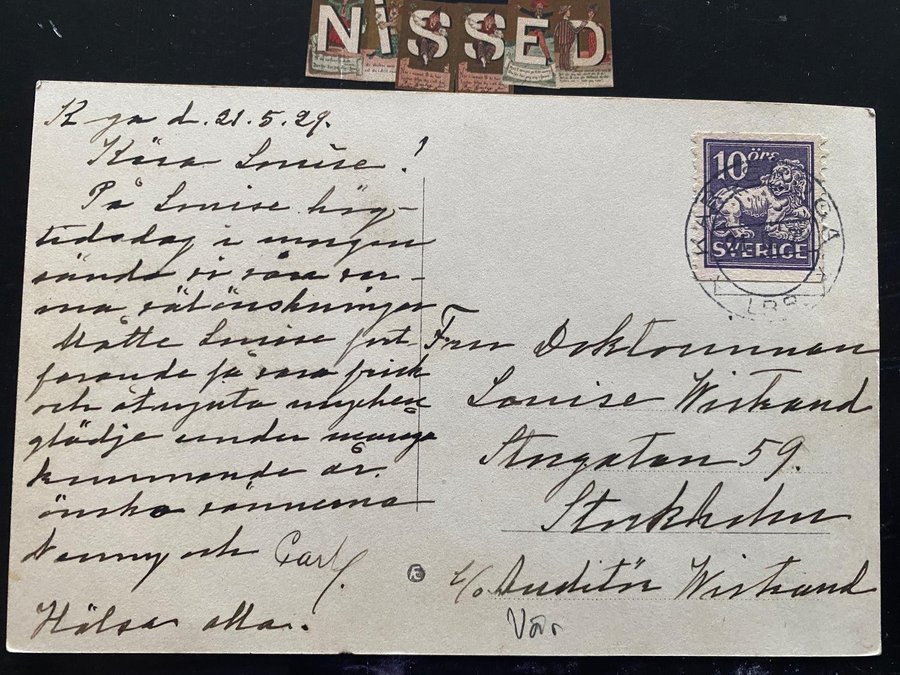 NISSED
K-ga d. 21.5.29.
Kära Louise!
På Louise hög-
tidsdag i morgon
sända vi våra var-
ma välönskningar
Måtte Louise fort-
farande få vara frisk
och åtnjuta mycken
glädje under många
kommande år
önska vännerna
Nenny och Carl.
Hälsa alla.
10 ÖRE
SVERIGE
Fru Doktorinnan
Louise Wistrand
Storgatan 59.
Stockholm
c/o Auditör Wistrand
Vår